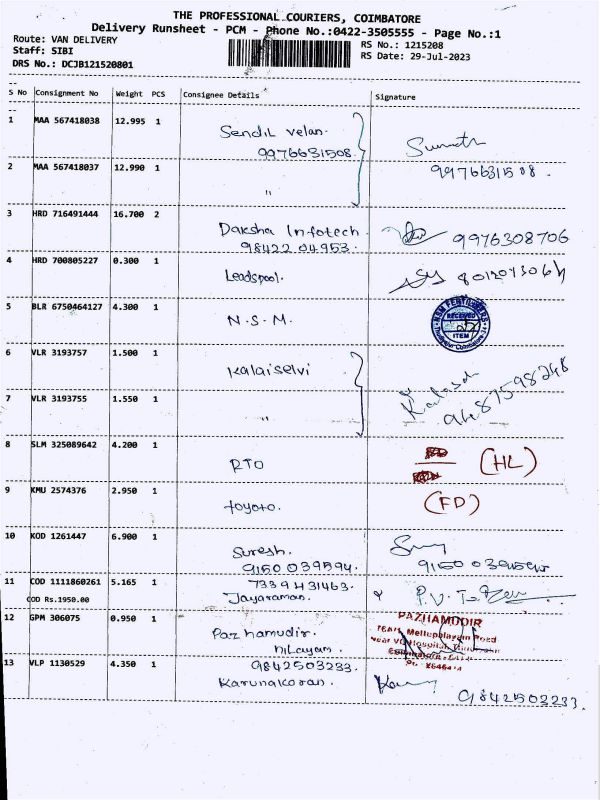 THE PROFESSIONAL COURIERS, COIMBATORE
Delivery Runsheet - PCM - Phone No.:0422-3505555 - Page No.:1
Route: VAN DELIVERY
RS No.: 1215208
Staff: SIBI
RS Date: 29-Jul-2023
DRS No.: DCJB121520801
S No Consignment No Weight PCS Consignee Details Signature
1 MAA 567418038 12.995 1 Sendil velan.
9976631508.
2 MAA 567418037 12.990 1 "
9976631508.
3 HRD 716491444 16.700 2 Daksha Infotech.
98422 04953. 9976308706
4 HRD 700805227 0.300 1 Leadspool.
5 BLR 6750464127 4.300 1 N.S.M. NSM FERTILIZERS
RECEIVED
ITEM
6 VLR 3193757 1.500 1 Kalaiselvi
7 VLR 3193755 1.550 1 "
9487598248
8 SLM 325089642 4.200 1 RTO (HL)
9 KMU 2574376 2.950 1 toyoto. (FD)
10 KOD 1261447 6.900 1 Suresh.
9150 039594.
11 COD 1111860261 5.165 1 7339431463.
COD Rs.1950.00 Jayaraman.
12 GPM 306075 0.950 1 Pazhamudir. PAZHAMUDIR
nilayam. Mettupalayam Road
13 VLP 1130529 4.350 1 9842503233.
Karunakaran. 9842503233.